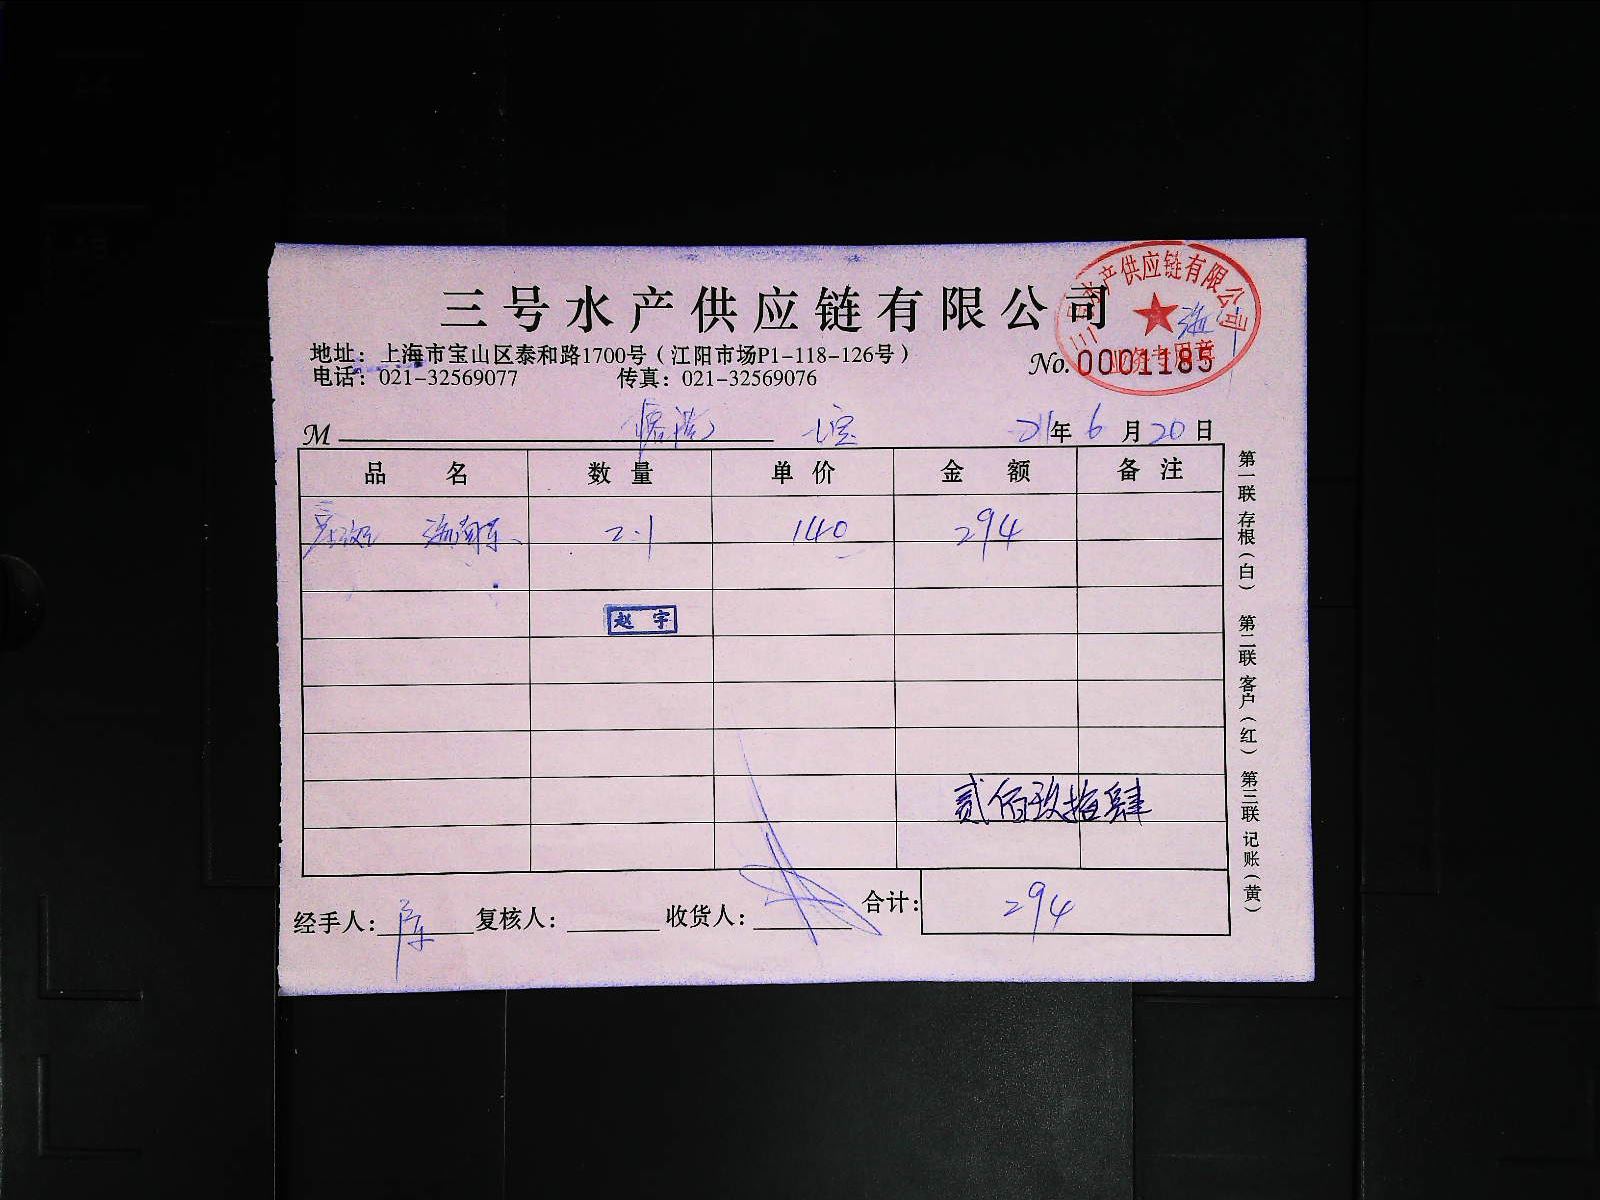 三号水产供应链有限公司
三号水产供应链有限公司
业务专用章
地址：上海市宝山区泰和路1700号（江阳市场P1-118-126号）
No. 0001185
电话：021-32569077 传真：021-32569076
M 七宝 21年 6月20日
品名 数量 单价 金额 备注
2.1 140 294
赵宇
贰佰玖拾肆
经手人： 复核人： 收货人： 合计： 294
第一联 存根（白） 第二联 客户（红） 第三联 记账（黄）